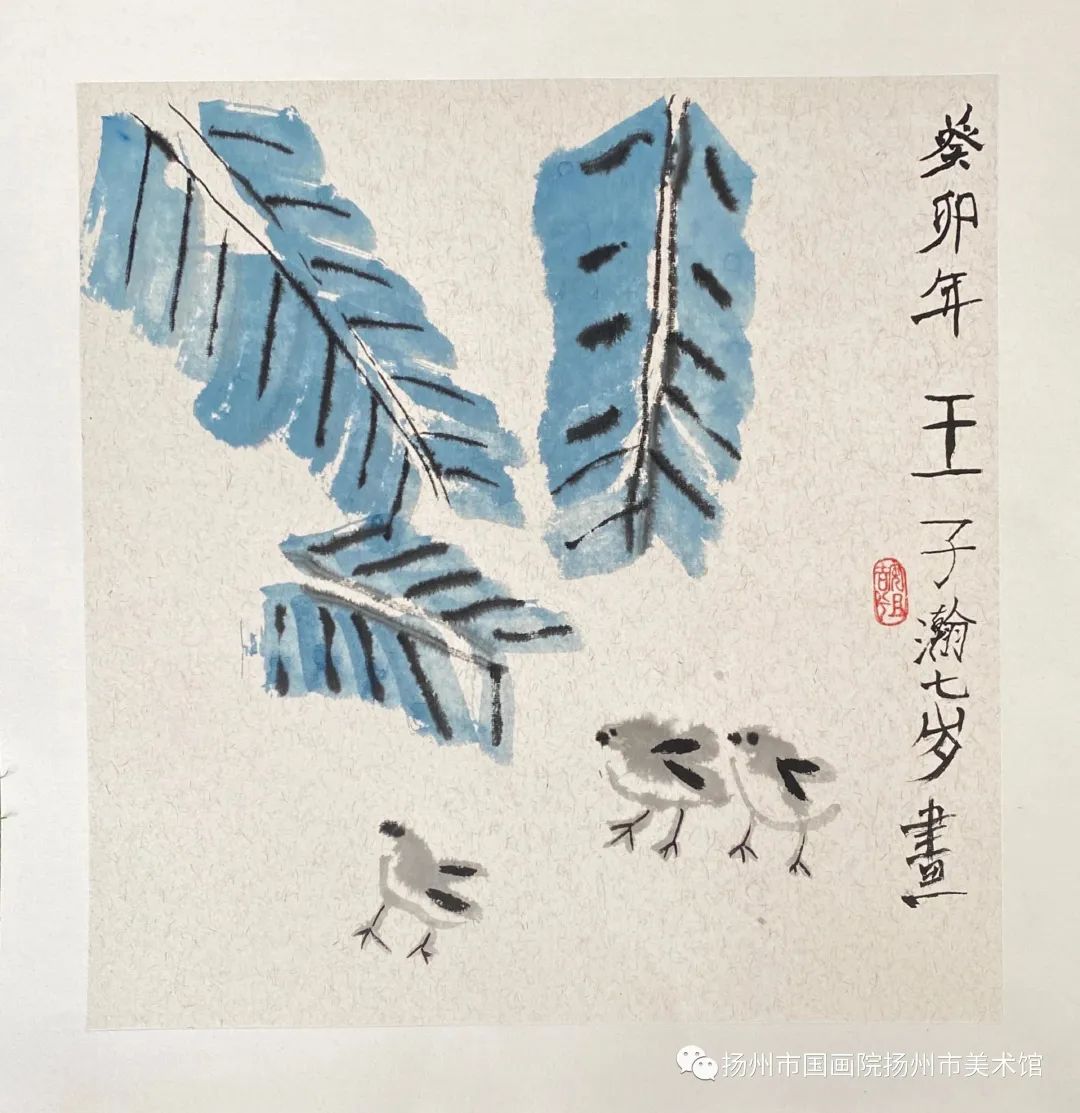 癸卯年 王子瀚七岁畫
扬州市国画院扬州市美术馆